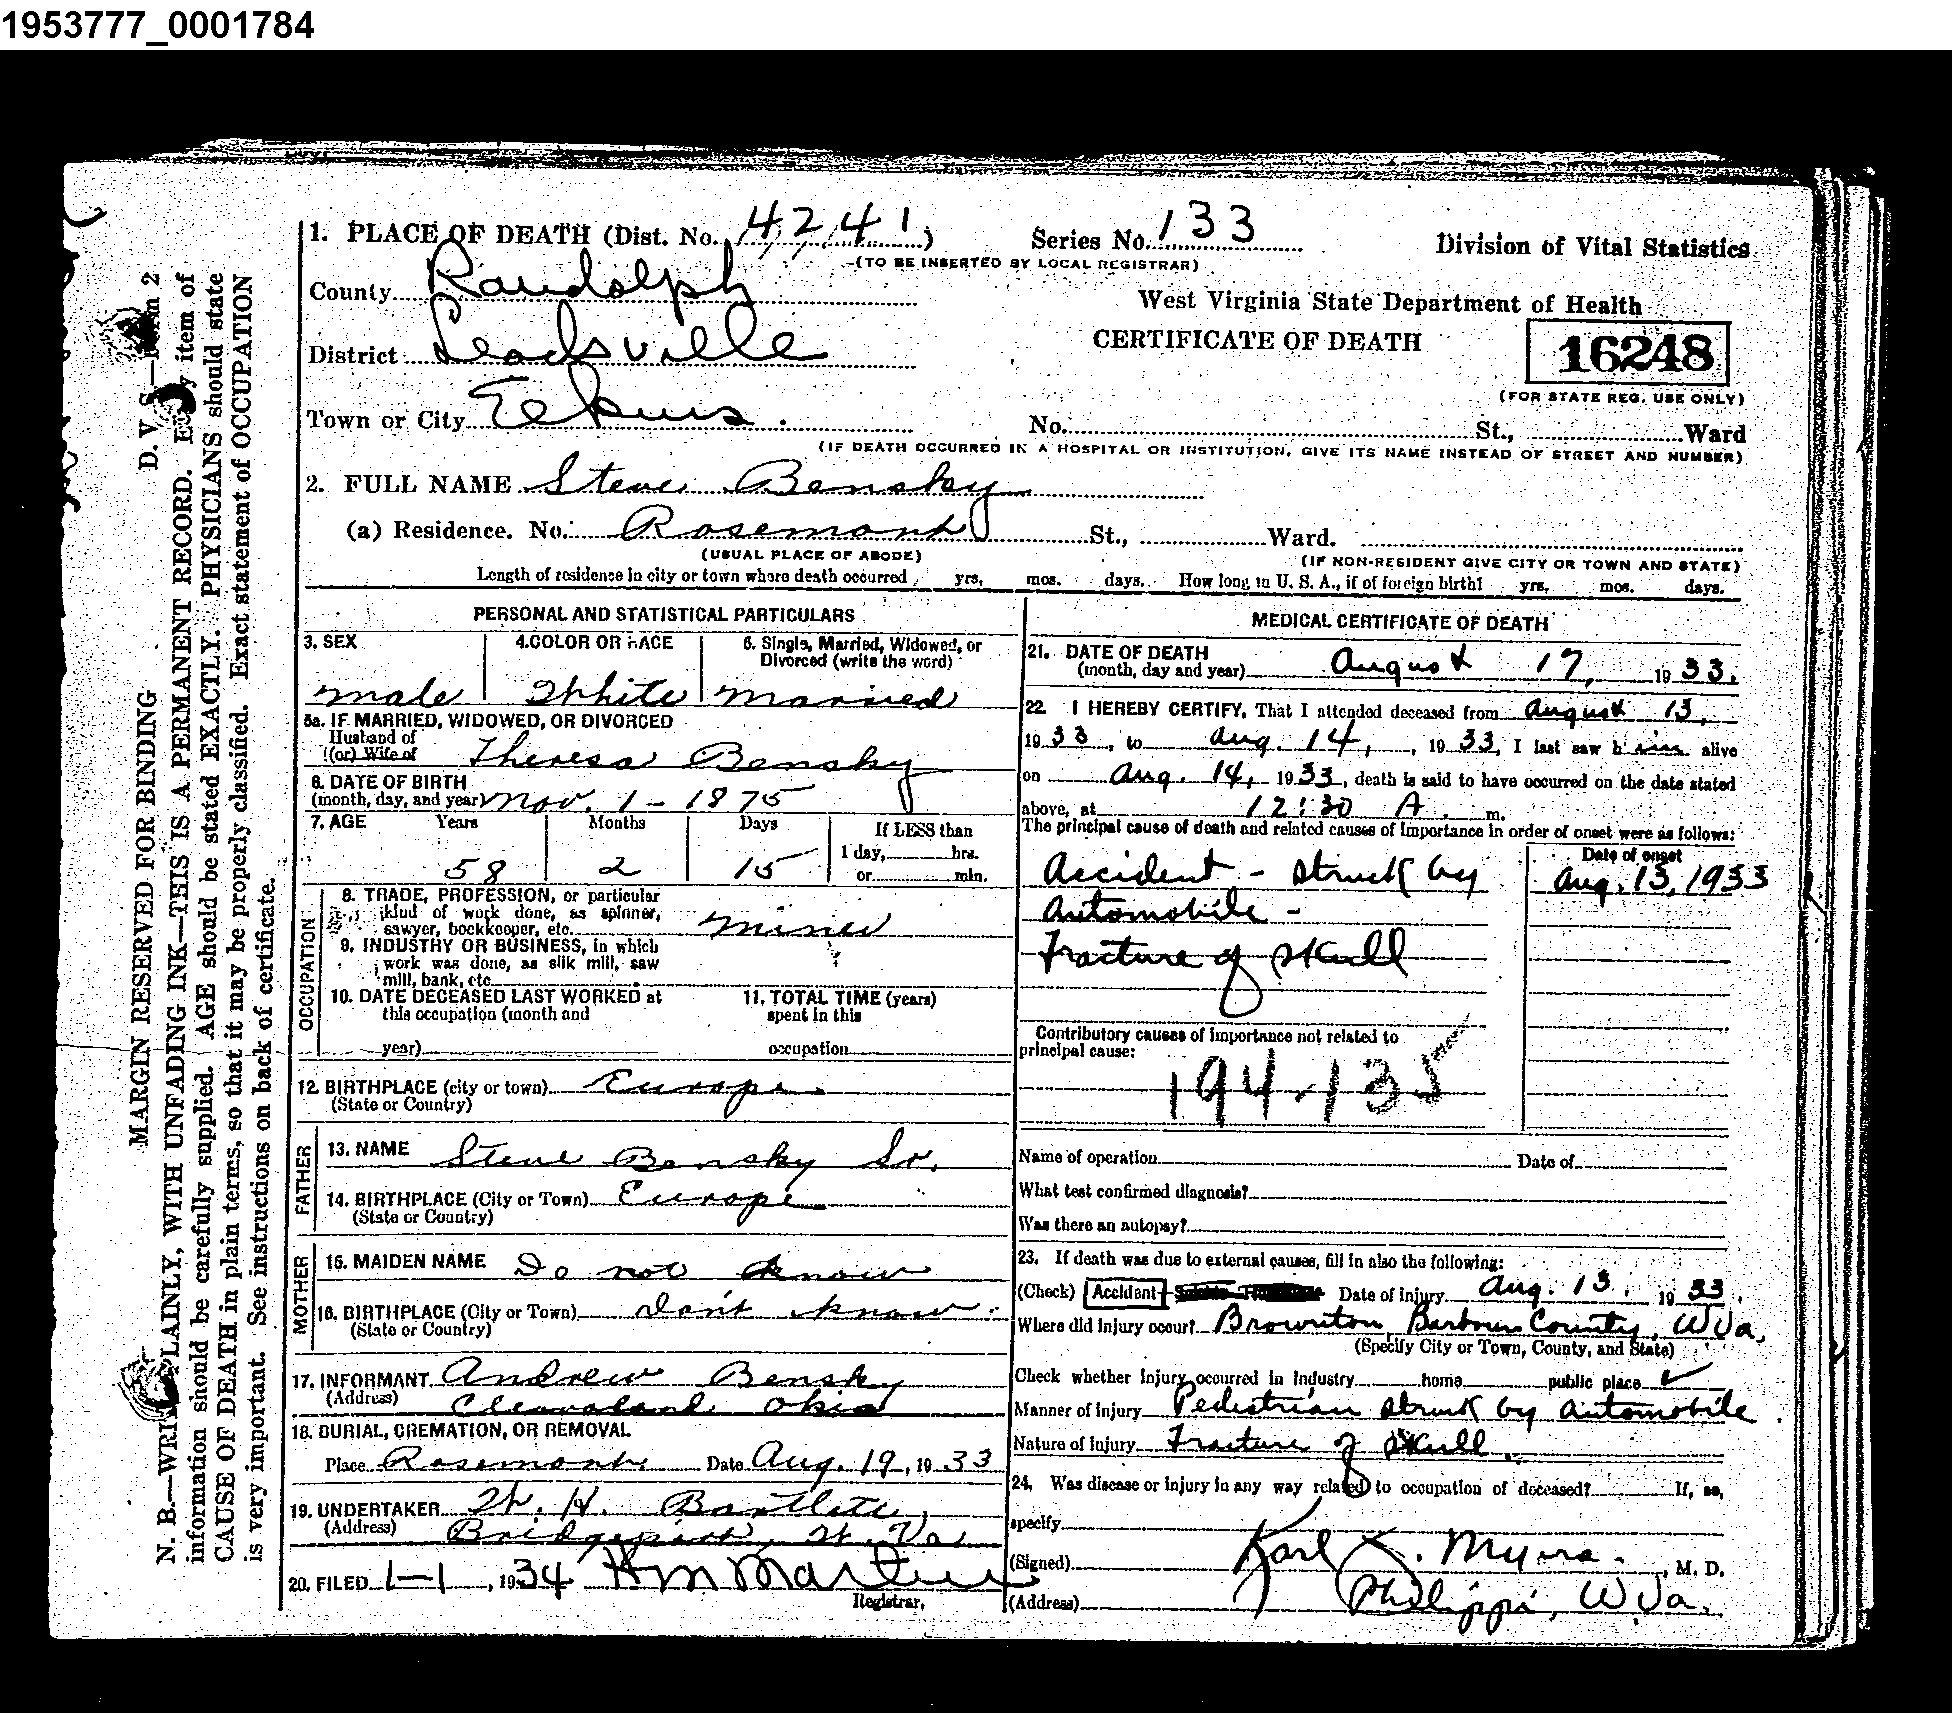 1953777_0001784
1. PLACE OF DEATH (Dist. No. 4241.) Series No. 133 Division of Vital Statistics
(TO BE INSERTED BY LOCAL REGISTRAR)
County Randolph West Virginia State Department of Health
District Leadsville CERTIFICATE OF DEATH 16248
(FOR STATE REG. USE ONLY)
Town or City Elkins. No. St., Ward
(IF DEATH OCCURRED IN A HOSPITAL OR INSTITUTION, GIVE ITS NAME INSTEAD OF STREET AND NUMBER)
2. FULL NAME Steve Bensky
(a) Residence. No. Rosemont St., Ward.
(USUAL PLACE OF ABODE) (IF NON-RESIDENT GIVE CITY OR TOWN AND STATE)
Length of residence in city or town where death occurred yrs. mos. days. How long in U. S. A., if of foreign birth? yrs. mos. days.
PERSONAL AND STATISTICAL PARTICULARS
3. SEX 4. COLOR OR RACE 5. Single, Married, Widowed, or
Divorced (write the word)
male White married
5a. IF MARRIED, WIDOWED, OR DIVORCED
Husband of
(or) Wife of Theresa Bensky
6. DATE OF BIRTH
(month, day, and year) Nov. 1-1875
7. AGE Years Months Days If LESS than
1 day, hrs.
58 2 15 or min.
OCCUPATION
8. TRADE, PROFESSION, or particular
kind of work done, as spinner,
sawyer, bookkeeper, etc. miner
9. INDUSTRY OR BUSINESS, in which
work was done, as silk mill, saw
mill, bank, etc.
10. DATE DECEASED LAST WORKED at 11. TOTAL TIME (years)
this occupation (month and spent in this
year) occupation
12. BIRTHPLACE (city or town) Europe.
(State or Country)
FATHER
13. NAME Steve Bensky Sr.
14. BIRTHPLACE (City or Town) Europe
(State or Country)
MOTHER
15. MAIDEN NAME Do not know
16. BIRTHPLACE (City or Town) Don't know.
(State or Country)
17. INFORMANT Andrew Bensky
(Address) Cleavaland Ohio
18. BURIAL, CREMATION, OR REMOVAL
Place Rosemont Date Aug. 19, 1933
19. UNDERTAKER W. H. Bartlett,
(Address) Bridgeport, W. Va
20. FILED 1-1, 1934 Martin
Registrar.
MEDICAL CERTIFICATE OF DEATH
21. DATE OF DEATH
(month, day and year) August 17, 1933.
22. I HEREBY CERTIFY, That I attended deceased from August 13,
1933, to Aug. 14, 1933, I last saw him alive
on Aug. 14, 1933, death is said to have occurred on the date stated
above, at 12:30 A. m.
The principal cause of death and related causes of importance in order of onset were as follows:
Date of onset
Accident - struck by Aug. 13, 1933
automobile -
Fracture of skull
Contributory causes of importance not related to
principal cause:
194-135
Name of operation Date of
What test confirmed diagnosis?
Was there an autopsy?
23. If death was due to external causes, fill in also the following:
(Check) Accident Date of injury Aug. 13, 1933.
Where did injury occur? Brownton Barbour County, W Va.
(Specify City or Town, County, and State)
Check whether injury occurred in industry home public place ✓
Manner of injury Pedestrian struck by automobile.
Nature of injury Fracture of Skull.
24. Was disease or injury in any way related to occupation of deceased? If, so,
specify
(Signed) Karl Myers. , M. D.
(Address) Philippi, W. Va.
MARGIN RESERVED FOR BINDING D. V. S.—Form 2
N. B.—WRITE PLAINLY, WITH UNFADING INK—THIS IS A PERMANENT RECORD. Every item of
information should be carefully supplied. AGE should be stated EXACTLY. PHYSICIANS should state
CAUSE OF DEATH in plain terms, so that it may be properly classified. Exact statement of OCCUPATION
is very important. See instructions on back of certificate.